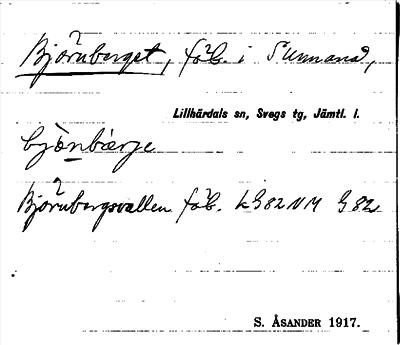 Björnberget, fäb. i Sunnanå,
Lillhärdals sn, Svegs tg, Jämtl. l.
bjö̀nbàrje
Björnbergsvallen fäb. LG82NM G82
S. ÅSANDER 1917.